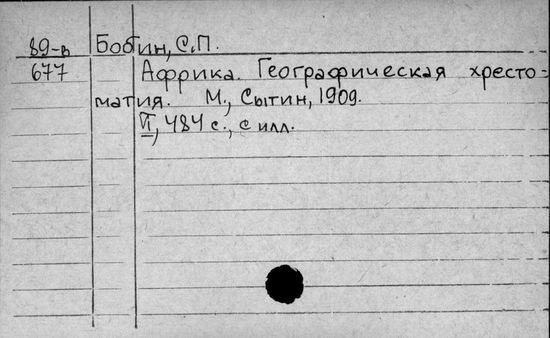 89-в Бобин, С.П.
677 Африка. Географическая хресто-
матия. М., Сытин, 1909.
VI, 484 с., с илл.